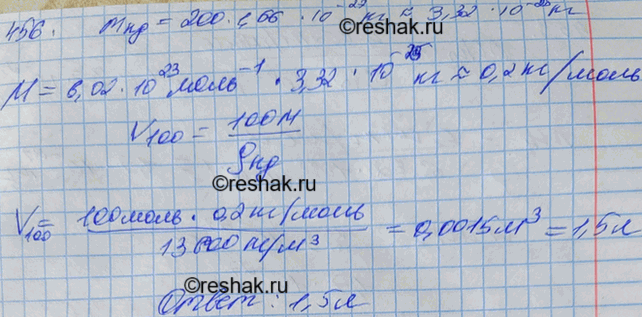 456. mнд = 200 · 1,66 · 10⁻²⁷ кг ≈ 3,32 · 10⁻²⁵ кг
©reshak.ru
M = 6,02 · 10²³ моль⁻¹ · 3,32 · 10⁻²⁵ кг ≈ 0,2 кг/моль
V₁₀₀ = 100M / ρнд
©reshak.ru
V₁₀₀ = 100 моль · 0,2 кг/моль / 13600 кг/м³ = 0,0015 м³ = 1,5 л
©reshak.ru
Ответ: 1,5 л